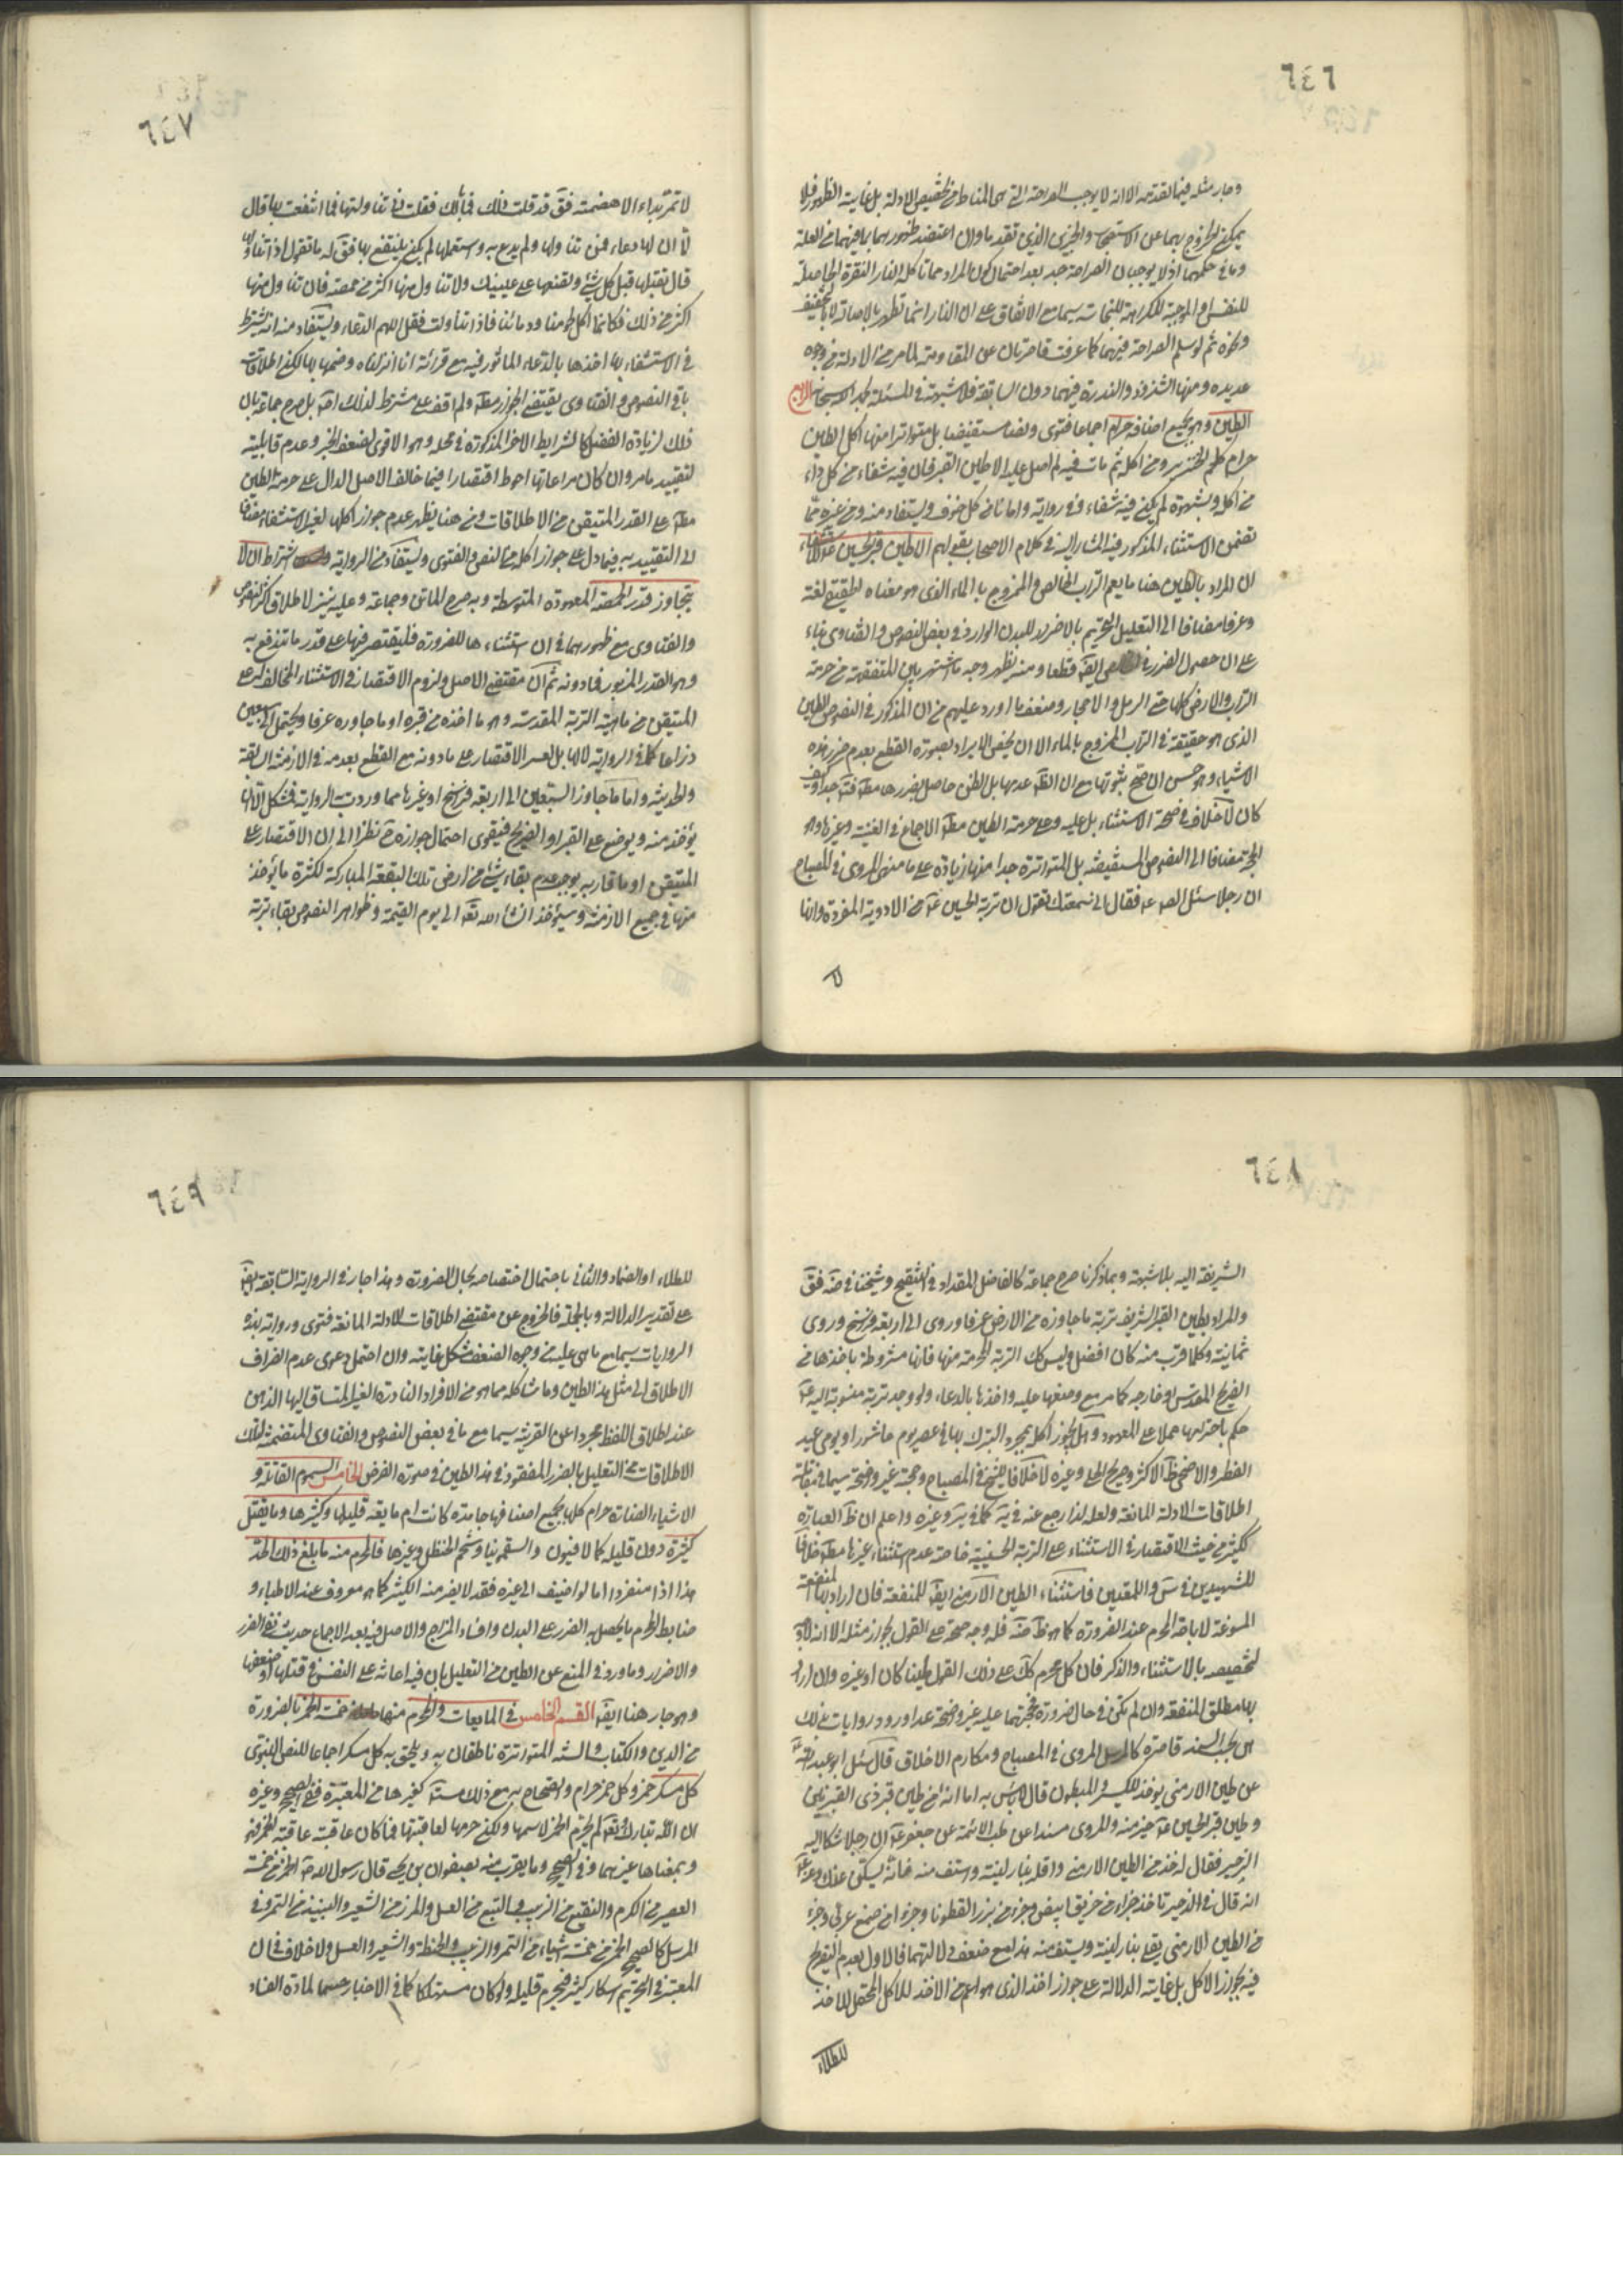 ٦٤٦
وجابر مثله فيما تقدمه الا انه لا يوجب الصراحة التي هي المناط في تخصيص الادلة بل غايته الظهور فلا
يمكن الخروج بهما عن الاستصحاب والخبرين الذي تقدما وان اعتضد ظهورهما بما فيهما من العلة
وما في حكمهما اذ لا يوجبان الصراحة جدا بعد احتمال كون المراد مما تاكله النار النفرة الحاصلة
للنفس او الموجبة للكراهة للنجاسة سيما مع الاتفاق على ان النار انما تطهر بالاحالة لا بالتجفيف
ونحوه ثم لو سلم الصراحة فيهما كما عرفت قاصرتان عن المقاومة لما مر من الادلة من وجوه
عديدة ومنها الشذوذ والندرة فيهما دون السابقة فلا شبهة في المسئلة بحمد الله سبحانه الرابع
الطين وهو بجميع اصنافه حرام اجماعا فتوى ونصا مستفيضا بل متواترا منها اكل الطين
حرام كلحم الخنزير ومن اكله ثم مات فيه لم اصل عليه الا طين القبر فان فيه شفاء من كل داء
من اكله بشهوة لم يكن فيه شفاء وفي رواية وامانا من كل خوف ويستفاد منه ومن غيره مما
تضمن الاستثناء المذكور فيه المشار اليه في كلام الاصحاب بقولهم الا طين قبر الحسين ع للاستشفاء
ان المراد بالطين هنا ما يعم التراب الخالص والممزوج بالماء الذي هو معناه الحقيقي لغة
وعرفا مضافا الى التعليل للتحريم بالاضرار للبدن الوارد في بعض النصوص والفتاوى بناء
على ان حصول الضرر في الخالص ايضا قطعا ومنه يظهر وجه ما اشتهر بين المتفقهة من حرمة
التراب والارض كلها حتى الرمل والاحجار وضعف ما اورد عليهم من ان المذكور في النصوص الطين
الذي هو حقيقة في التراب الممزوج بالماء الا ان يخص الايراد بصورة القطع بعدم ضرر هذه
الاشياء وهو حسن ان صح ثبوتها مع ان الظ عدمها بل الظن حاصل بضررها مطلقا جدا وكيف
كان لا خلاف في صحة الاستثناء بل عليه وعلى حرمة الطين مطلقا الاجماع في الغنية وغيرها وهو
الحجة مضافا الى النصوص المستفيضة بل المتواترة جدا منها زيادة على ما مضى المروي في المصباح
ان رجلا سئل الصادق ع فقال اني سمعتك تقول ان تربة الحسين ع من الادوية المفردة وانها
لا
٦٤٧
لا تمر بداء الا هضمته فق قد قلت ذلك فما بالك فقلت اني تناولتها فما انتفعت بها قال
اما ان لها دعاء فمن تناولها ولم يدع به واستعملها لم يكن ينتفع بها فق له ما تقول اذا تناولها
قال تقبلها قبل كل شئ وتضعها على عينيك ولا تناول منها اكثر من حمصة فان تناول منها
اكثر من ذلك فكانما اكل لحومنا ودمائنا فاذا تناولت فقل اللهم الدعاء ويستفاد منه انه يشترط
في الاستشفاء بها اخذها بالدعاء الماثور فيه مع قرائة انا انزلناه وختمها بها لكن اطلاق
باقي النصوص والفتاوى يقتضي الجواز مطلقا ولم اقف على مشترط لذلك اصلا بل صرح جماعة بان
ذلك لزيادة الفضل كالشرايط الاخر المذكورة في محله وهو الاقوى لضعف الخبر وعدم قابليته
لتقييد ما مر وان كان مراعاتها احوط اقتصارا فيما خالف الاصل الدال على حرمة الطين
مطلقا على القدر المتيقن من الاطلاقات ومن هنا يظهر عدم جواز اكلها لغير الاستشفاء مضافا
الى التقييد به فيما دل على جواز اكله من النص والفتوى ويستفاد من الرواية اشتراط ان لا
يتجاوز قدر الحمصة المعهودة المتوسطة وبه صرح الماتن وجماعة وعليه ينزل اطلاق اكثر النصوص
والفتاوى مع ظهورهما في ان استثناءها للضرورة فليقتصر فيها على قدر ما تندفع به
وهو القدر المزبور فما دونه ثم ان مقتضى الاصل ولزوم الاقتصار في الاستثناء المخالف له على
المتيقن من ماهية التربة المقدسة وهو ما اخذ من قبره او ما جاوره عرفا ويحتمل الى سبعين
ذراعا كما في الرواية لا لها بل لعسر الاقتصار على ما دونه مع القطع بعدمه في الازمنة السابقة
والحديثة واما ما جاوز السبعين الى اربعة فراسخ او غيرها مما وردت به الرواية فمشكل الا ان
يؤخذ منه ويوضع على القبر او الضريح فيقوى احتمال جوازه ح نظرا الى ان الاقتصار على
المتيقن او ما قاربه يوجب عدم بقاء شئ من ارض تلك البقعة المباركة لكثرة ما يؤخذ
منها في جميع الازمنة وسيؤخذ انشاء الله تعالى الى يوم القيمة وظواهر النصوص بقاء تربته
٦٤٨
الشريفة اليه بلا شبهة وبما ذكرنا صرح جماعة كالفاضل المقداد في التنقيح وشيخنا في ضه فق
والمراد بطين القبر الشريف تربة ما جاوره من الارض عرفا وروى الى اربعة فراسخ وروى
ثمانية وكلما قرب منه كان افضل وليس كك التربة المحترمة منها فانها مشروطة باخذها من
الضريح المقدس او خارجه كما مر مع وضعها عليه واخذها بالدعاء ولو وجد تربة منسوبة اليه ع
حكم باحترامها حملا على المعهود وهل يجوز اكله بمجرد التبرك بها في عصر يوم عاشورا ويومي عيد
الفطر والاضحى ظ الاكثر وصريح الحلي وغيره لا خلافا للشيخ في المصباح وحجته غير واضحة سيما في مقابلة
اطلاقات الادلة المانعة ولعله لذا رجع عنه في ية كما في ئر وغيره واعلم ان ظ العبارة
ككثير من حيث الاقتصار في الاستثناء على التربة الحسينية خاصة عدم استثناء غيرها مطلقا خلافا
للشهيدين في س واللمعتين فاستثناء الطين الارمني ايضا للمنفعة فان ارادا بها المنفعة
المسوغة لاباحة المحرم عند الضرورة كما هو ظ ضه فله وجه صحة على القول بجواز مثله الا انه لا وجه
لتخصيصه بالاستثناء والذكر فان كل محرم كك على ذلك القول طينا كان او غيره وان ارادا
بها مطلق المنفعة وان لم تكن في حال ضرورة فحجتهما عليه غير واضحة عدا ورود روايات هي
بحسب السند قاصرة كالمرسل المروي في المصباح ومكارم الاخلاق قال سئل ابو عبد الله ع
عن طين الارمني يؤخذ للكسير والمبطون قال لا باس به اما انه من طين قبر ذي القرنين
وطين قبر الحسين ع خير منه والمروي مسندا عن طب الائمة عن جعفر ع ان رجلا شكا اليه
الزحير فقال له خذ من الطين الارمني واقله بنار لينة واستف منه فانه يسكن عنك وعنه ع
انه قال في الزحير تاخذ جزءا من خريق ابيض وجزء من بزر القطونا وجزءا من صمغ عربي وجزء
من الطين الارمني يقلى بنار لينة ويستف منه هذا مع ضعف دلالتهما فالاول بعدم التصريح
فيه بجواز الاكل بل غايته الدلالة على جواز اخذه الذي هو اعم من الاخذ للاكل المحتمل للاخذ
للطلاء
٦٤٩
للطلاء او الضماد والثاني باحتمال اختصاصه بحال الضرورة وهذا جار في الرواية السابقة ايضا
على تقدير الدلالة وبالجملة فالخروج عن مقتضى اطلاقات الادلة المانعة فتوى ورواية بهذه
الروايات سيما مع ما هي عليه من وجوه الضعف مشكل غايته وان احتمل دعوى عدم انصراف
الاطلاق الى مثل هذا الطين وما شاكله مما هو من الافراد النادرة الغير المتساق اليها الذهن
عند اطلاق اللفظ مجردا عن القرينة سيما مع ما في بعض النصوص والفتاوى المتضمنة لتلك
الاطلاقات من التعليل بالضرر المفقود في هذا الطين في صورة الفرض الخامس السموم القاتلة و
الاشياء الضارة حرام كلها بجميع اصنافها جامدة كانت ام مايعة قليلها وكثيرها وما يقتل
كثيره دون قليله كالافيون والسقمونيا وشحم الحنظل وغيرها فالمحرم منه ما بلغ ذلك الحد
هذا اذا اخذ منفردا اما لو اضيف الى غيره فقد لا يضر منه الكثير كما هو معروف عند الاطباء و
ضابط المحرم ما يحصل به الضرر على البدن وافساد المزاج والاصل فيه بعد الاجماع حديث نفي الضرر
والاضرار وما ورد في المنع عن الطين من التعليل بان فيه اعانة على النفس في قتلها او ضعفها
وهو جار هنا ايضا القسم الخامس في المايعات والمحرم منها خمسة الخمر بالضرورة
من الدين والكتاب والسنة المتواترة ناطقان به ويلحق به كل مسكر اجماعا للنص النبوي
كل مسكر خمر وكل خمر حرام والصحاح به مع ذلك مستفيضة كغيرها من المعتبرة ففي الصحيح وغيره
ان الله تبارك وتعالى لم يحرم الخمر لاسمها ولكن حرمها لعاقبتها فما كان عاقبته عاقبة الخمر فهو خمر
وبمعناها غيرهما وفي الصحيح وما يقرب منه بصفوان بن يحيى قال رسول الله ص الخمر من خمسة
العصير من الكرم والنقيع من الزبيب والبتع من العسل والمزر من الشعير والنبيذ من التمر وفي
المرسل كالصحيح الخمر من خمسة اشياء من التمر والزبيب والحنطة والشعير والعسل ولا خلاف في ان
المعتبر في التحريم اسكار كثيره فيحرم قليله ولو كان مستهلكا كما في الاخبار حسما لمادة الفساد